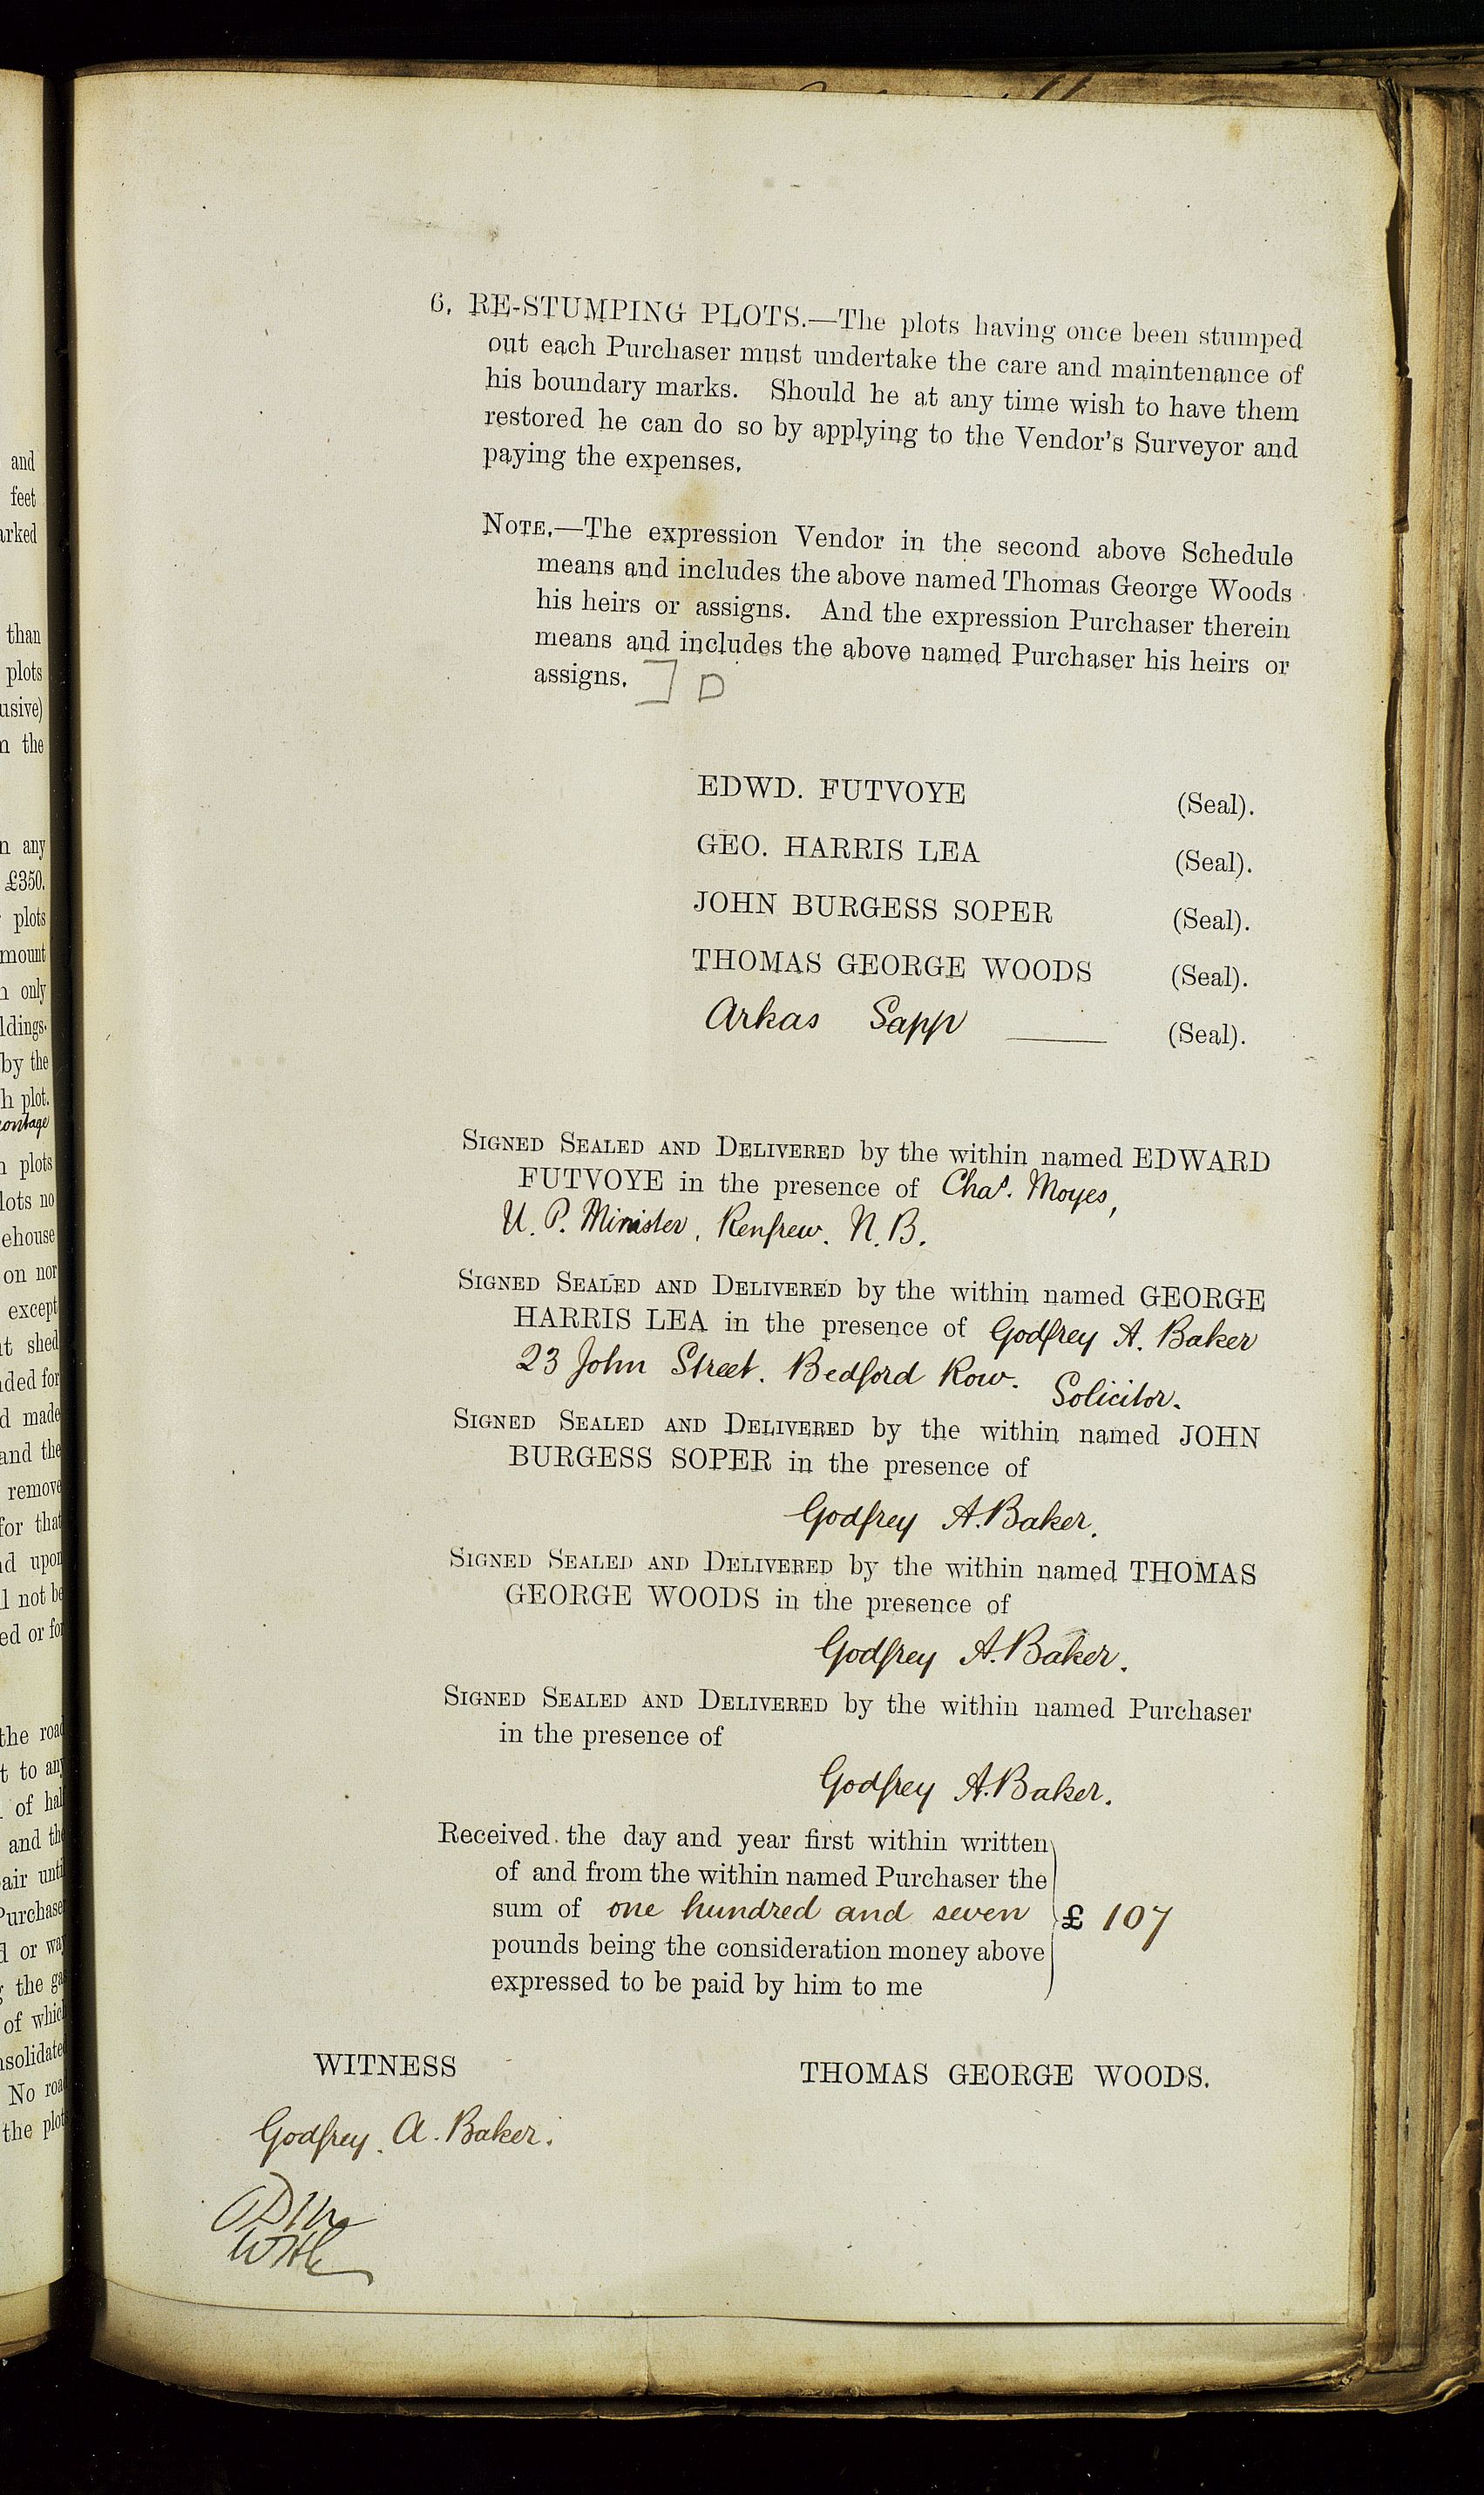 and
feet
arked
than
plots
usive)
n the
n any
£350.
plots
mount
n only
ldings.
by the
h plot.
rontage
n plots
lots no
ehouse
on nor
except
t shed
ded for
d made
and the
remove
for that
d upon
l not be
ed or for
the road
t to any
of hal
and the
air unti
Purchase
d or way
the ga
of which
nsolidate
No roa
the plot
6. RE-STUMPING PLOTS.—The plots having once been stumped
out each Purchaser must undertake the care and maintenance of
his boundary marks. Should he at any time wish to have them
restored he can do so by applying to the Vendor's Surveyor and
paying the expenses.
NOTE.—The expression Vendor in the second above Schedule
means and includes the above named Thomas George Woods
his heirs or assigns. And the expression Purchaser therein
means and includes the above named Purchaser his heirs or
assigns. ] D
EDWD. FUTVOYE (Seal).
GEO. HARRIS LEA (Seal).
JOHN BURGESS SOPER (Seal).
THOMAS GEORGE WOODS (Seal).
Arkas Sapp ——— (Seal).
SIGNED SEALED AND DELIVERED by the within named EDWARD
FUTVOYE in the presence of Chas. Moyes,
U. P. Minister, Renfrew. N. B.
SIGNED SEALED AND DELIVERED by the within named GEORGE
HARRIS LEA in the presence of Godfrey A. Baker
23 John Street. Bedford Row. Solicitor.
SIGNED SEALED AND DELIVERED by the within named JOHN
BURGESS SOPER in the presence of
Godfrey A. Baker.
SIGNED SEALED AND DELIVERED by the within named THOMAS
GEORGE WOODS in the presence of
Godfrey A. Baker.
SIGNED SEALED AND DELIVERED by the within named Purchaser
in the presence of
Godfrey A. Baker.
Received the day and year first within written
of and from the within named Purchaser the
sum of one hundred and seven £ 107
pounds being the consideration money above
expressed to be paid by him to me
WITNESS THOMAS GEORGE WOODS.
Godfrey. A. Baker.